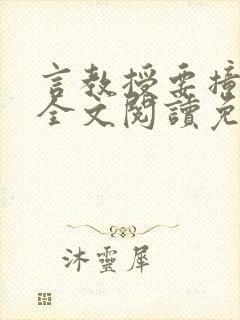 言教授要撞
全文閱讀免
沐靈犀